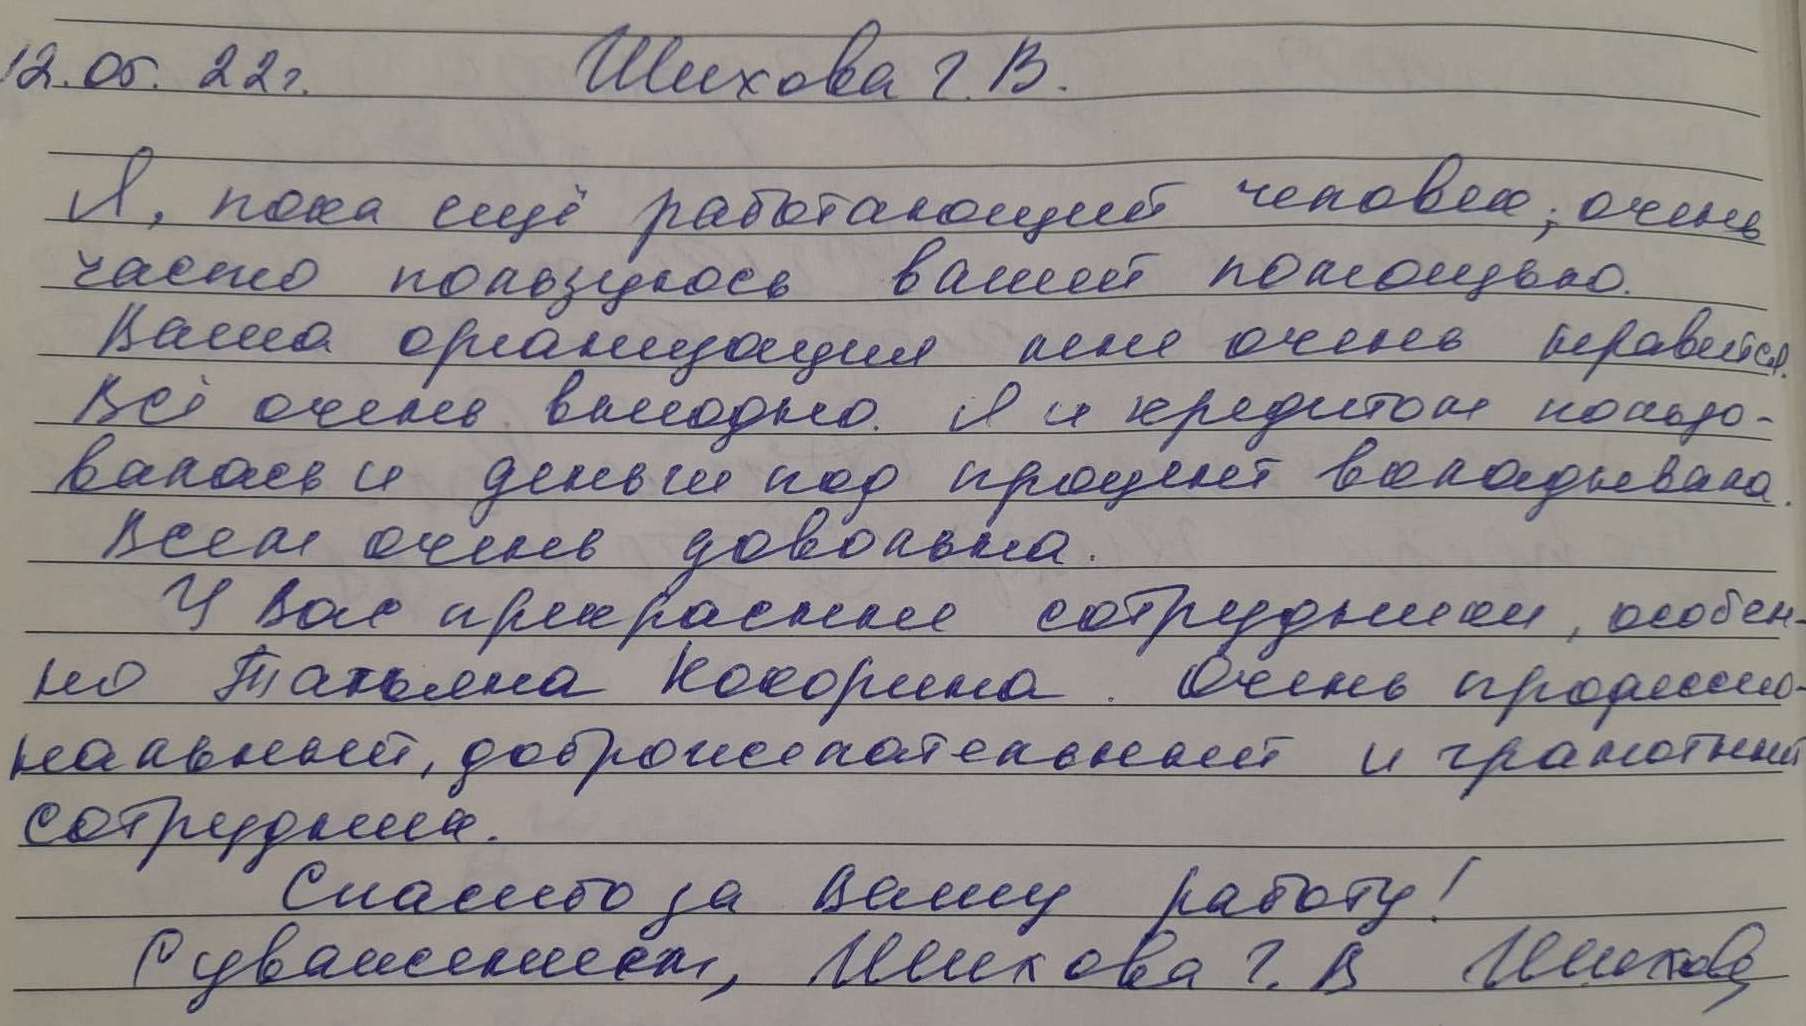 12.05.22г. Шихова Г.В.
Я, пока ещё работающий человек, очень
часто пользуюсь вашей помощью.
Ваша организация мне очень нравится.
Всё очень выгодно. Я и кредитом пользо-
валась и деньги под процент вкладывала.
Всем очень довольна.
У Вас прекрасные сотрудники, особен-
но Татьяна Кокорина. Очень профессио-
нальный, доброжелательный и грамотный
сотрудник.
Спасибо за Вашу работу!
С уважением, Шихова Г.В Шихова